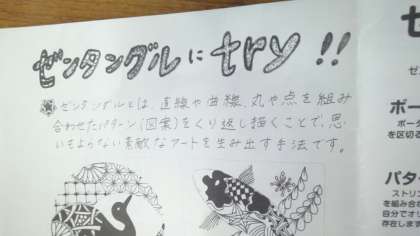 ゼンタングルに try !!
ゼンタングルとは、直線や曲線、丸や点を組み
合わせたパターン(図案)をくり返し描くことで、思
いもよらない素敵なアートを生み出す手法です。
ゼ
ボー
ボーダ
を区切る
パタ
ストリン
を組み合わ
自分でオリ
存在します